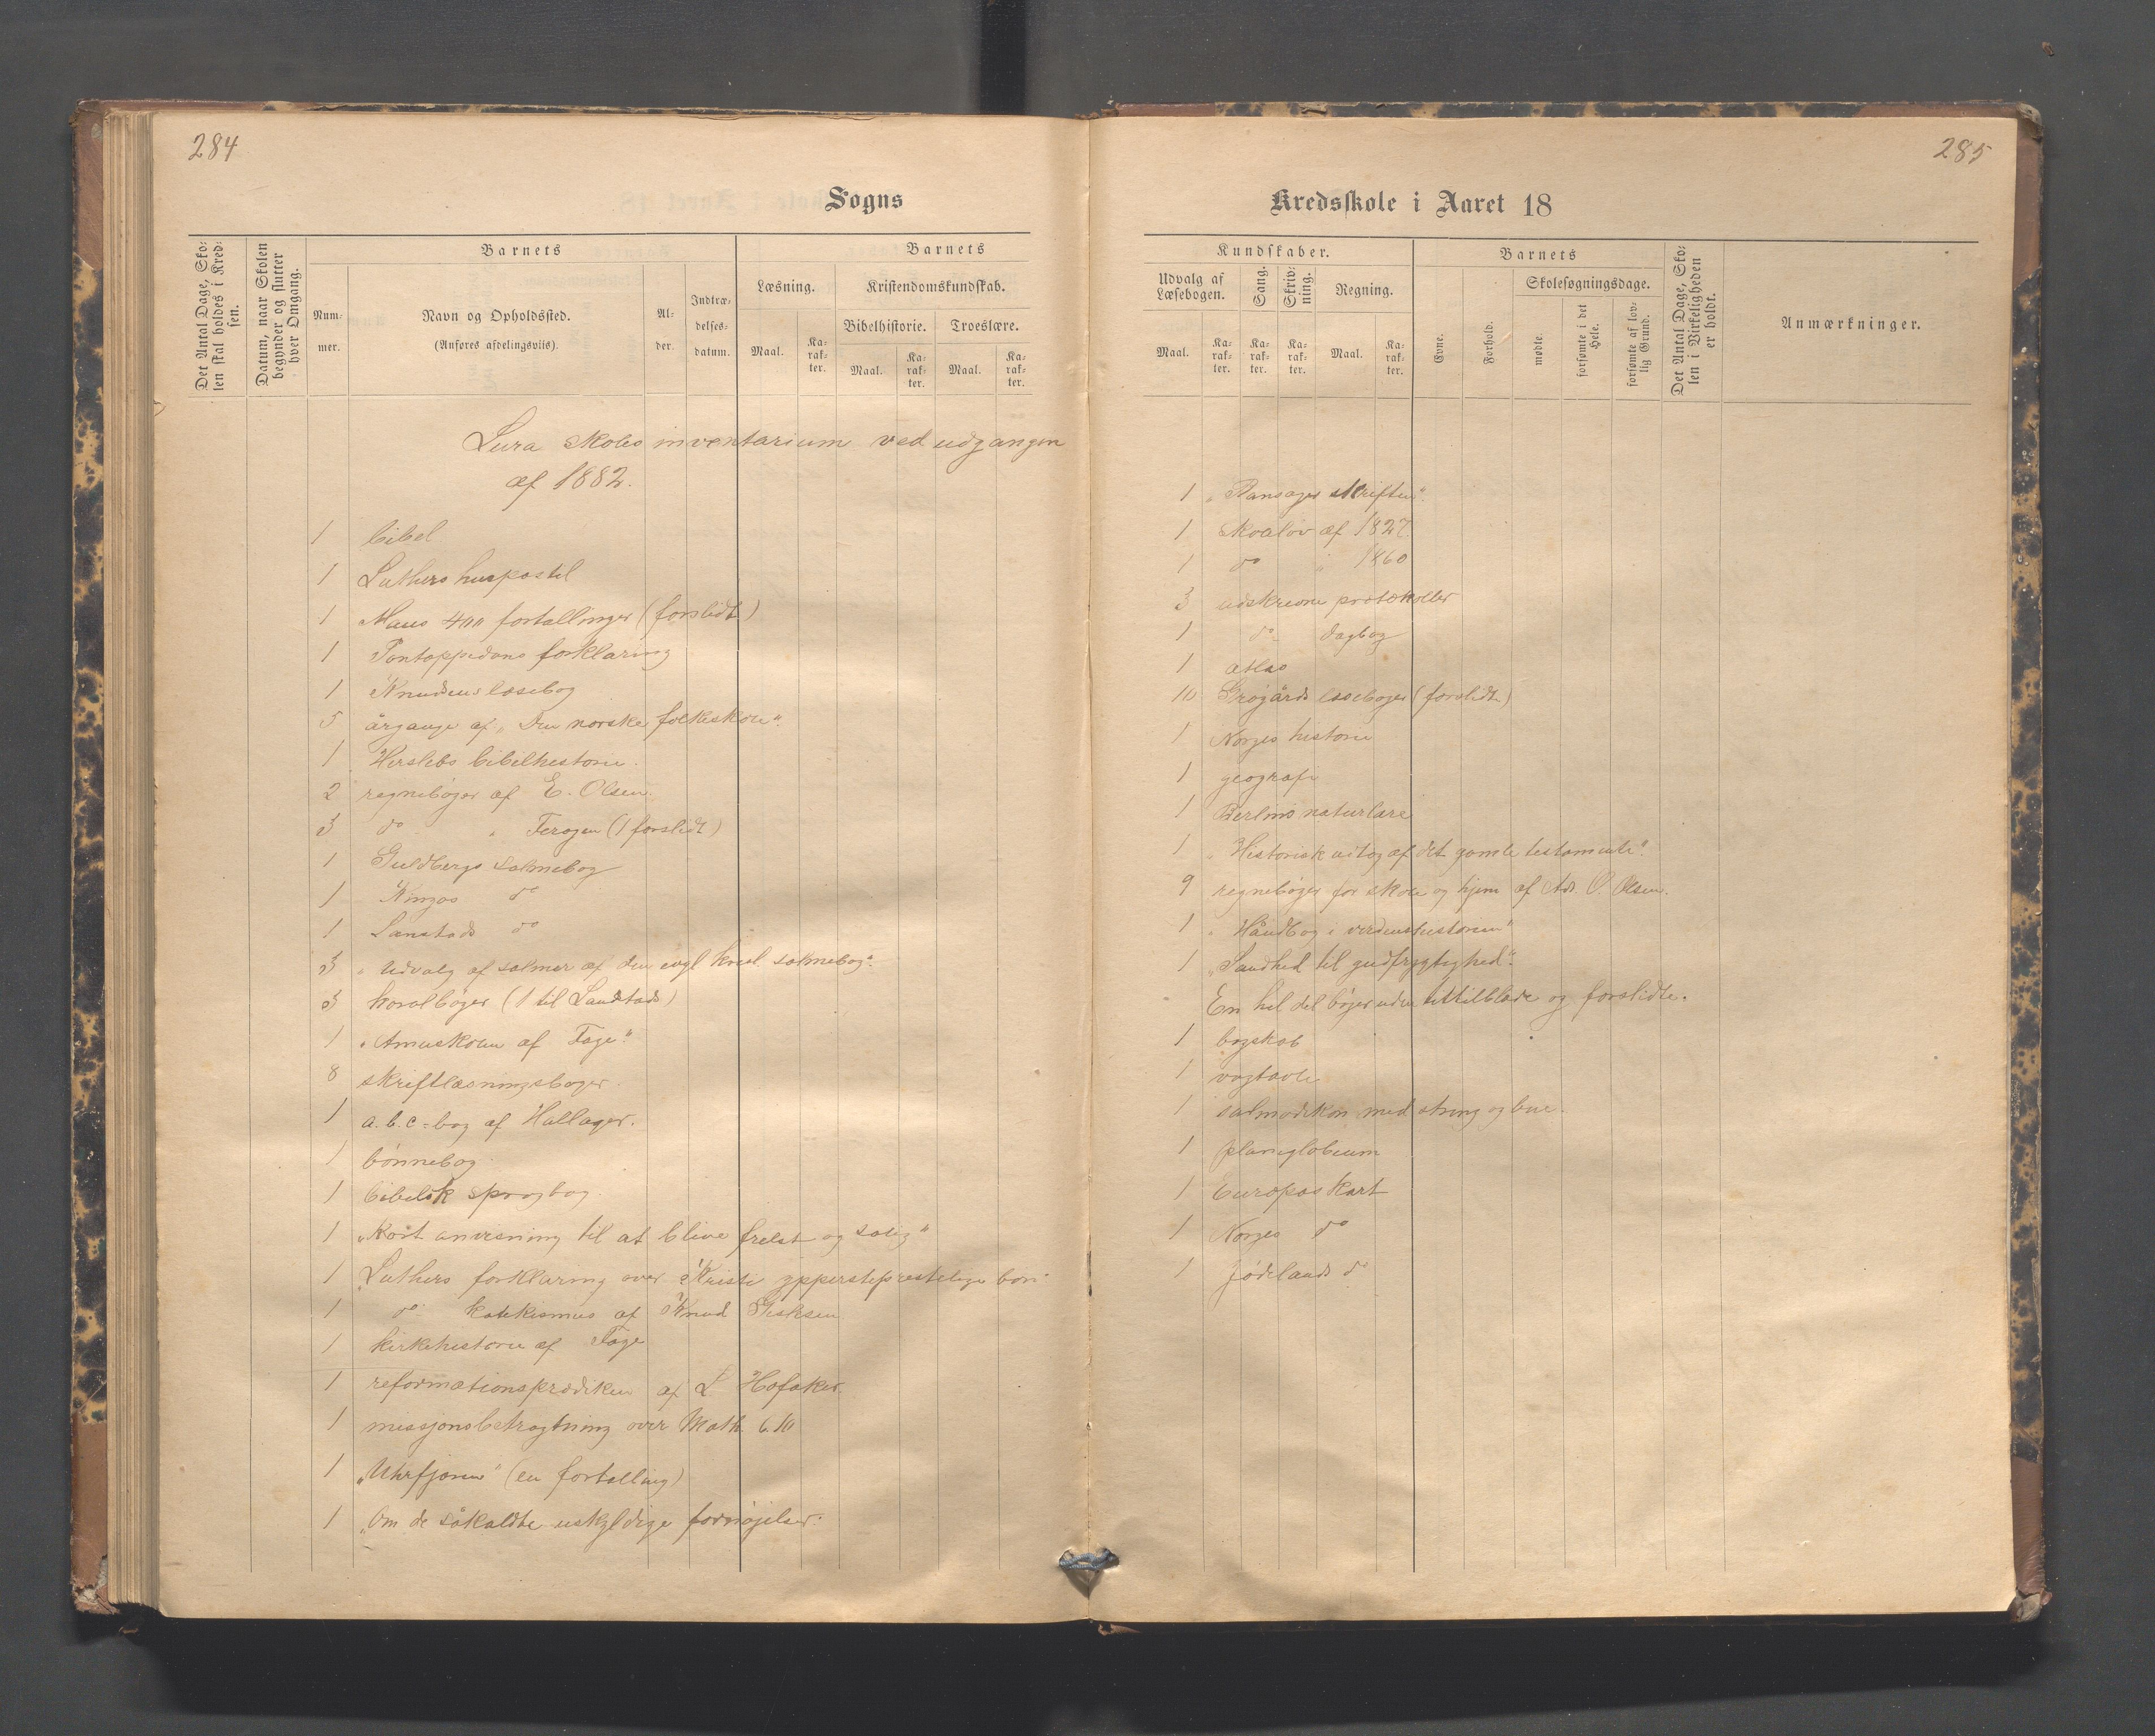 284
Sogns
Det Antal Dage, Sko-
len skal holdes i Kred-
sen.
Datum, naar Skolen
begynder og slutter
hver Omgang.
Barnets
Num-
mer.
Navn og Opholdssted.
(Anføres afdelingsviis).
Al-
der.
Indtræ-
delses-
datum.
Barnets
Læsning.
Kristendomskundskab.
Bibelhistorie.
Troeslære.
Maal.
Ka-
rak-
ter.
Maal.
Ka-
rak-
ter.
Maal.
Ka-
rak-
ter.
Lura skoles inventarium ved udgangen
af 1882.
1 bibel
1 Luthers huspostil
1 Maus 400 fortællinger (forslidt)
1 Pontoppidans forklaring
1 Knudsens læsebog
5 årgange af „Den norske folkeskole“.
1 Herslebs bibelhistorie.
2 regnebøger af E. Olsen.
3 do „ Ferogen (1 forslidt)
1 Guldbergs salmebog
1 Kingos do
1 Lanstads do
3 „Udvalg af salmer af den evgl. krist. salmebog“.
3 koralbøger (1 til Landstads)
1 „Amuskolen af Foge“.
8 skriftlæsningsbøger.
1 a.b.c-bog af Hallager.
1 bønnebog
1 bibelsk sprogbog
1 „Kort anvisning til at blive frelst og salig“
1 Luthers forklaring over Kristi ypperstepresteligebøn
1 do katekismus af Knud Gisksen
1 kirkehistorie af Foge
1 reformationsprædiken af L Hofaker.
1 missjonsbetragtning over Math. 6.10
1 (en fortælling)
1 „Om de såkaldte uskyldige fornøjelser.
285
Kredsskole i Aaret 18
Kundskaber.
Udvalg af
Læsebogen.
Sang.
Skriv-
ning.
Regning.
Maal.
Ka-
rak-
ter.
Ka-
rak-
ter.
Ka-
rak-
ter.
Maal.
Ka-
rak-
ter.
Barnets
Evne.
Forhold.
Skolesøgningsdage.
mødte.
forsømte i det
Hele.
forsømte af lov-
lig Grund.
Det Antal Dage, Sko-
len i Virkeligheden
er holdt.
Anmærkninger.
1 „Ransager skriften“.
1 Skoelov af 1827.
1 do „ 1860
3 udskrevne protokoller
1 do dagbog
1 atlas
10 Grøgårds læsebøger (forslidte)
1 Norges historie
1 geografi
1 Berlins naturlære
1 „Historisk udtog af det gamle testamente“.
9 regnebøger for skole og hjem af Ads. O. Olsen.
1 „Håndbog i verdenshistorien“
1 „Sandhed til gudfrygtighed“.
En hel del bøger uden tittilblade og forslidte.
1 bogskab
1 vægtavle
1 salmodikon med streng og bue.
1 planiglobium
1 Europas kart
1 Norges do
1 Jødelands do